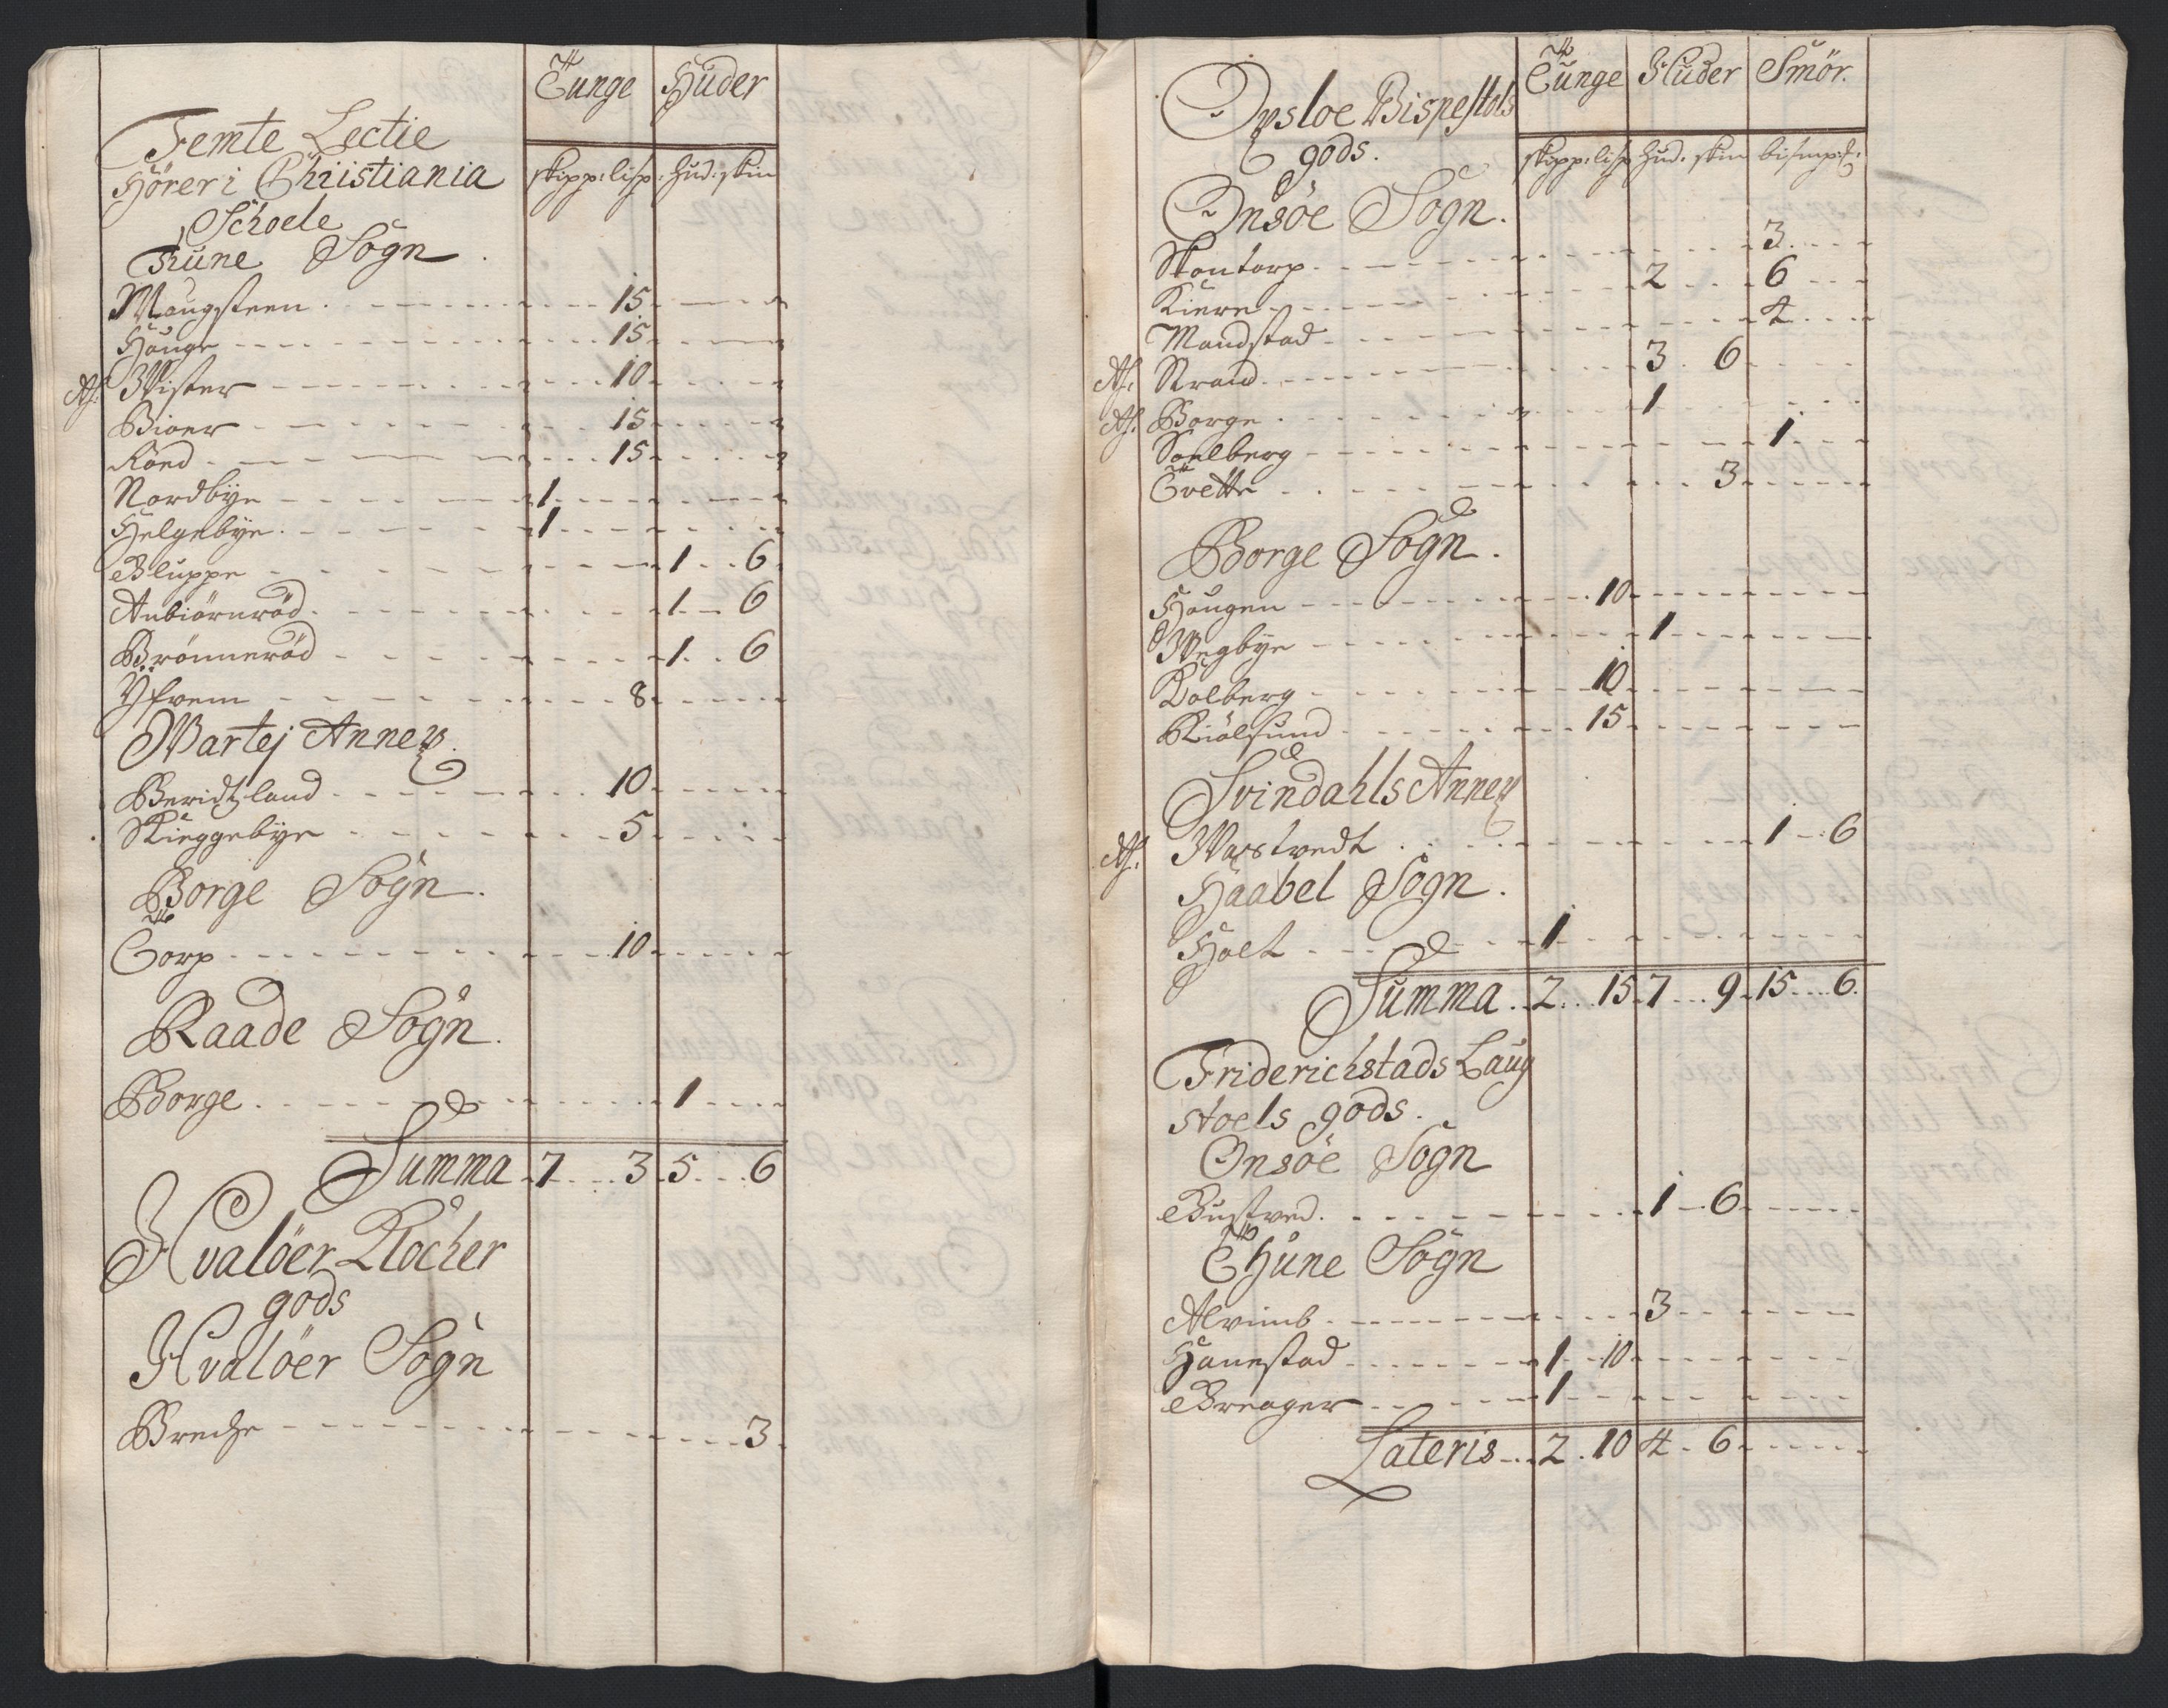 Tunge Huder
Femte Lectie
Hörer i Christiania
Schoele
skipp: lisp: hud: skin
Tune Sogn
Maugsteen 15
Houge 15
Wister 10
Bioer 15
Röed 15
Nordbÿe 1
Helgebÿe 1
Bluppe 1 6
Anbiörnröd 1 6
Brönneröd 1 6
Ÿfrem 8
Wartej Annex
Beridtzland 10
Skieggebÿe 5
Borge Sogn.
Torp 10
Raade Sogn.
Borge 1
Summa 7 3 5 6
Hvalöer Klocher
gods
Hvalöer Sogn
Breche 3
Tunge Huder Smör.
Opsloe Bispestols
gods.
skipp: lisp hud: skin bismp:
Onsöe Sogn.
Skontorp 3
Kiere 2 6
Mandstad 4
Strand 3 6
Borge 1
Soelberg 1
Tvette 3
Borge Sogn.
Hougen 10
Wegbÿe 1
Dolberg 10
Kiölsund 15
Svindahls Annex
Warstvedt 1 6
Haabel Sogn.
Holt 1
Summa 2 15 7 9 15 6
Friderichstads Laug
stoels gods.
Onsöe Sogn
Bustved 1 6
Thune Sogn
Alvimb 3
Hanestad 1 10
Breager 1
Lateris 2 10 4 6